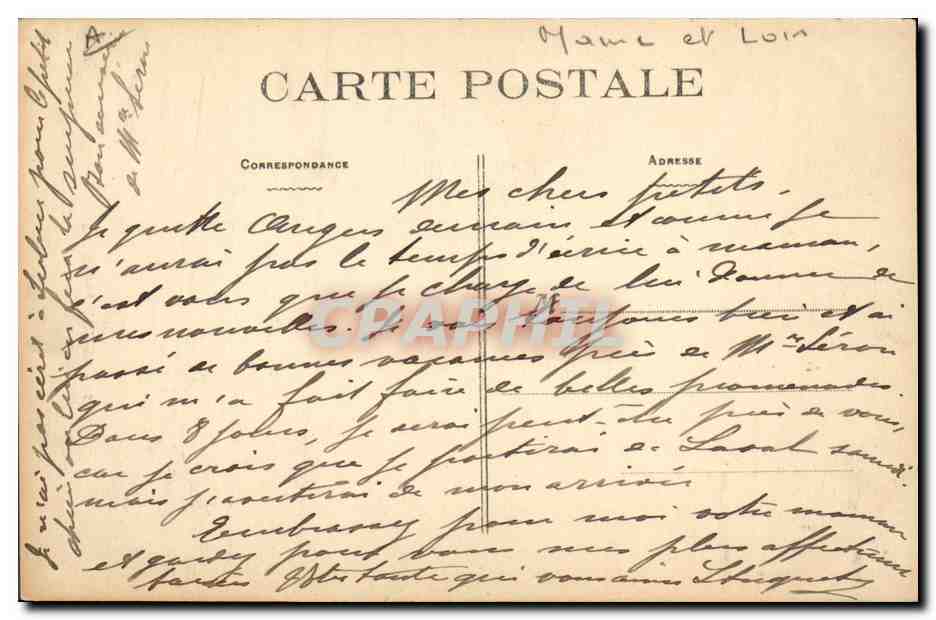 Maine et Loir
CARTE POSTALE
CORRESPONDANCE
ADRESSE
Mes chers petits,
Je quitte Angers demain et comme je
n'aurai pas le temps d'écrire à maman,
c'est vous que je charge de lui donner de
mes nouvelles. Je vais toujours bien et ai
passé de bonnes vacances près de Mme Séron
qui m'a fait faire de belles promenades
Dans 8 jours, je serai peut-être près de vous,
car je crois que je partirai de Laval samedi
mais j'avertirai de mon arrivée
Embrassez pour moi votre maman
et gardez pour vous mes plus affectueux
baisers Votre tante qui vous aime
Je n'ai pas écrit à
A
Bon
de Mme Séron
CPAPHIL